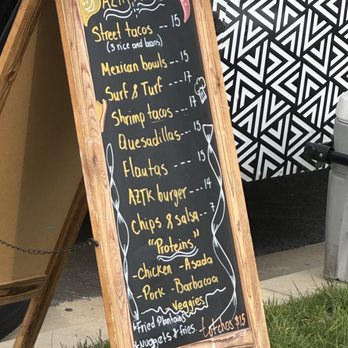 Street tacos -- 15
(3 rice and beans)
Mexican bowls -- 15
Surf & Turf --- 17
Shrimp tacos --- 17
Quesadillas -- 15
Flautas --- 15
AZTK burger - 14
Chips & salsa -- 7
"Proteins"
-Chicken -Asada
-Pork -Barbacoa
veggies
Fried Plantains
Nuggets & Fries